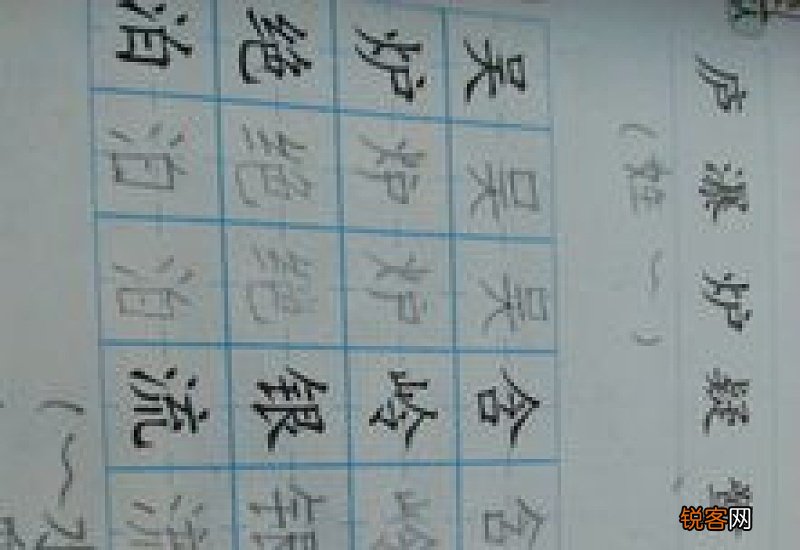 庐 派 炉 疑
(姓 ~)
吴 吴 吴 含 含
炉 炉 炉 岭 岭
绝 绝 绝 银 银
泊 泊 泊 流 流
锐客网